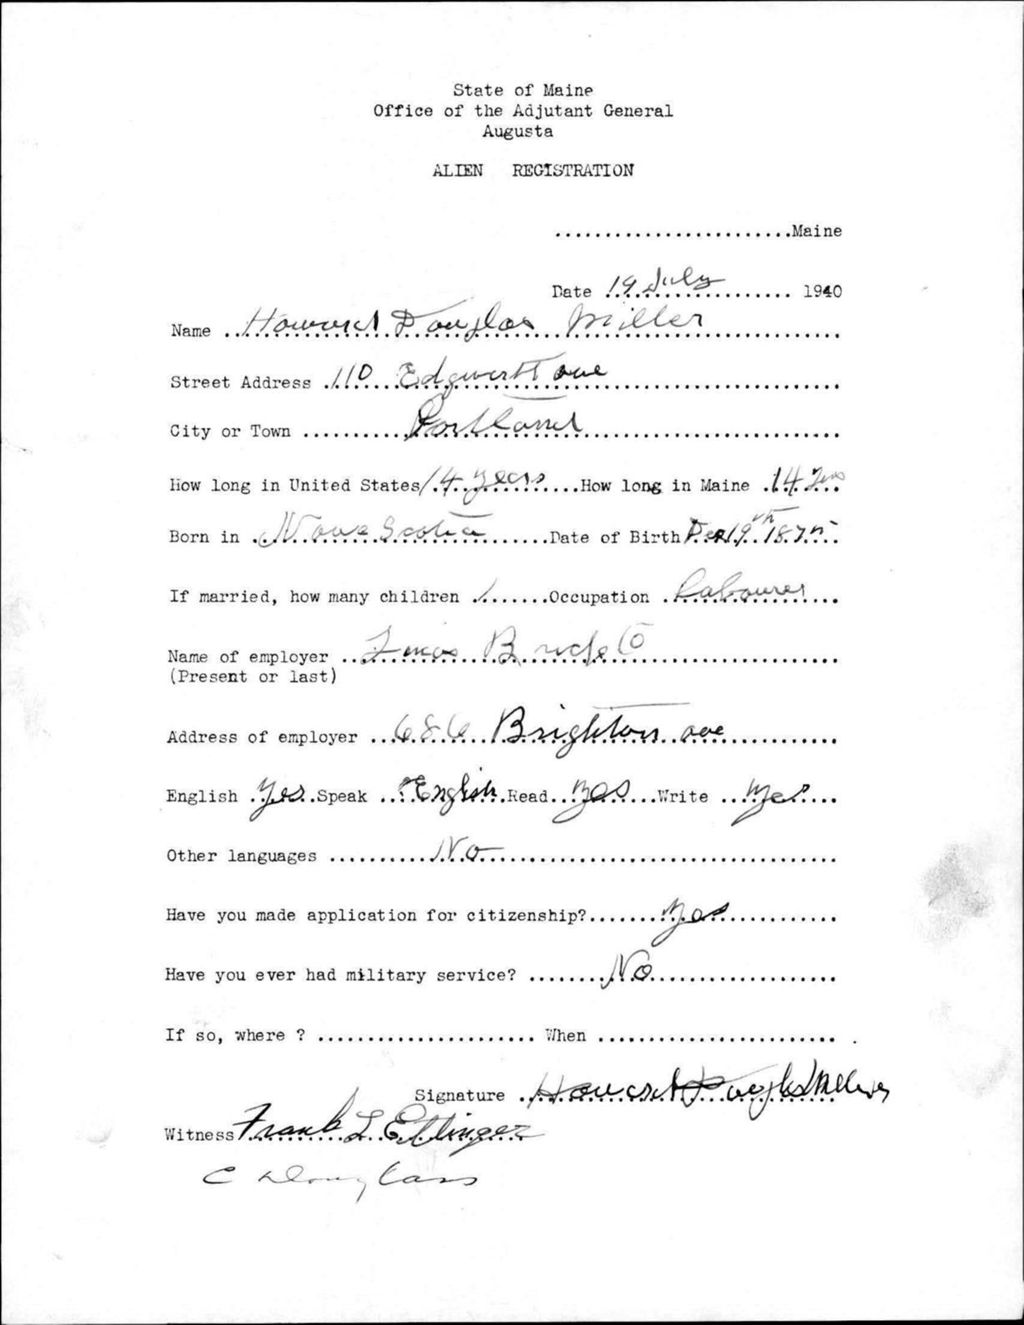 State of Maine
Office of the Adjutant General
Augusta
ALIEN REGISTRATION
........................Maine
Date 19 July 1940
Name Howard Douglas Miller
Street Address 110 Edgworth ave
City or Town Portland
How long in United States 14 years How long in Maine 14
Born in Nova Scotia Date of Birth 19th 1875
If married, how many children 1 Occupation Labourer
Name of employer
(Present or last)
Address of employer 686 Brighton ave
English Yes Speak English Read Yes Write Yes
Other languages No
Have you made application for citizenship? Yes
Have you ever had military service? No
If so, where ? ...................... When ........................ .
Signature Howard Douglas Miller
Witness Frank L Ettinger
C Douglass